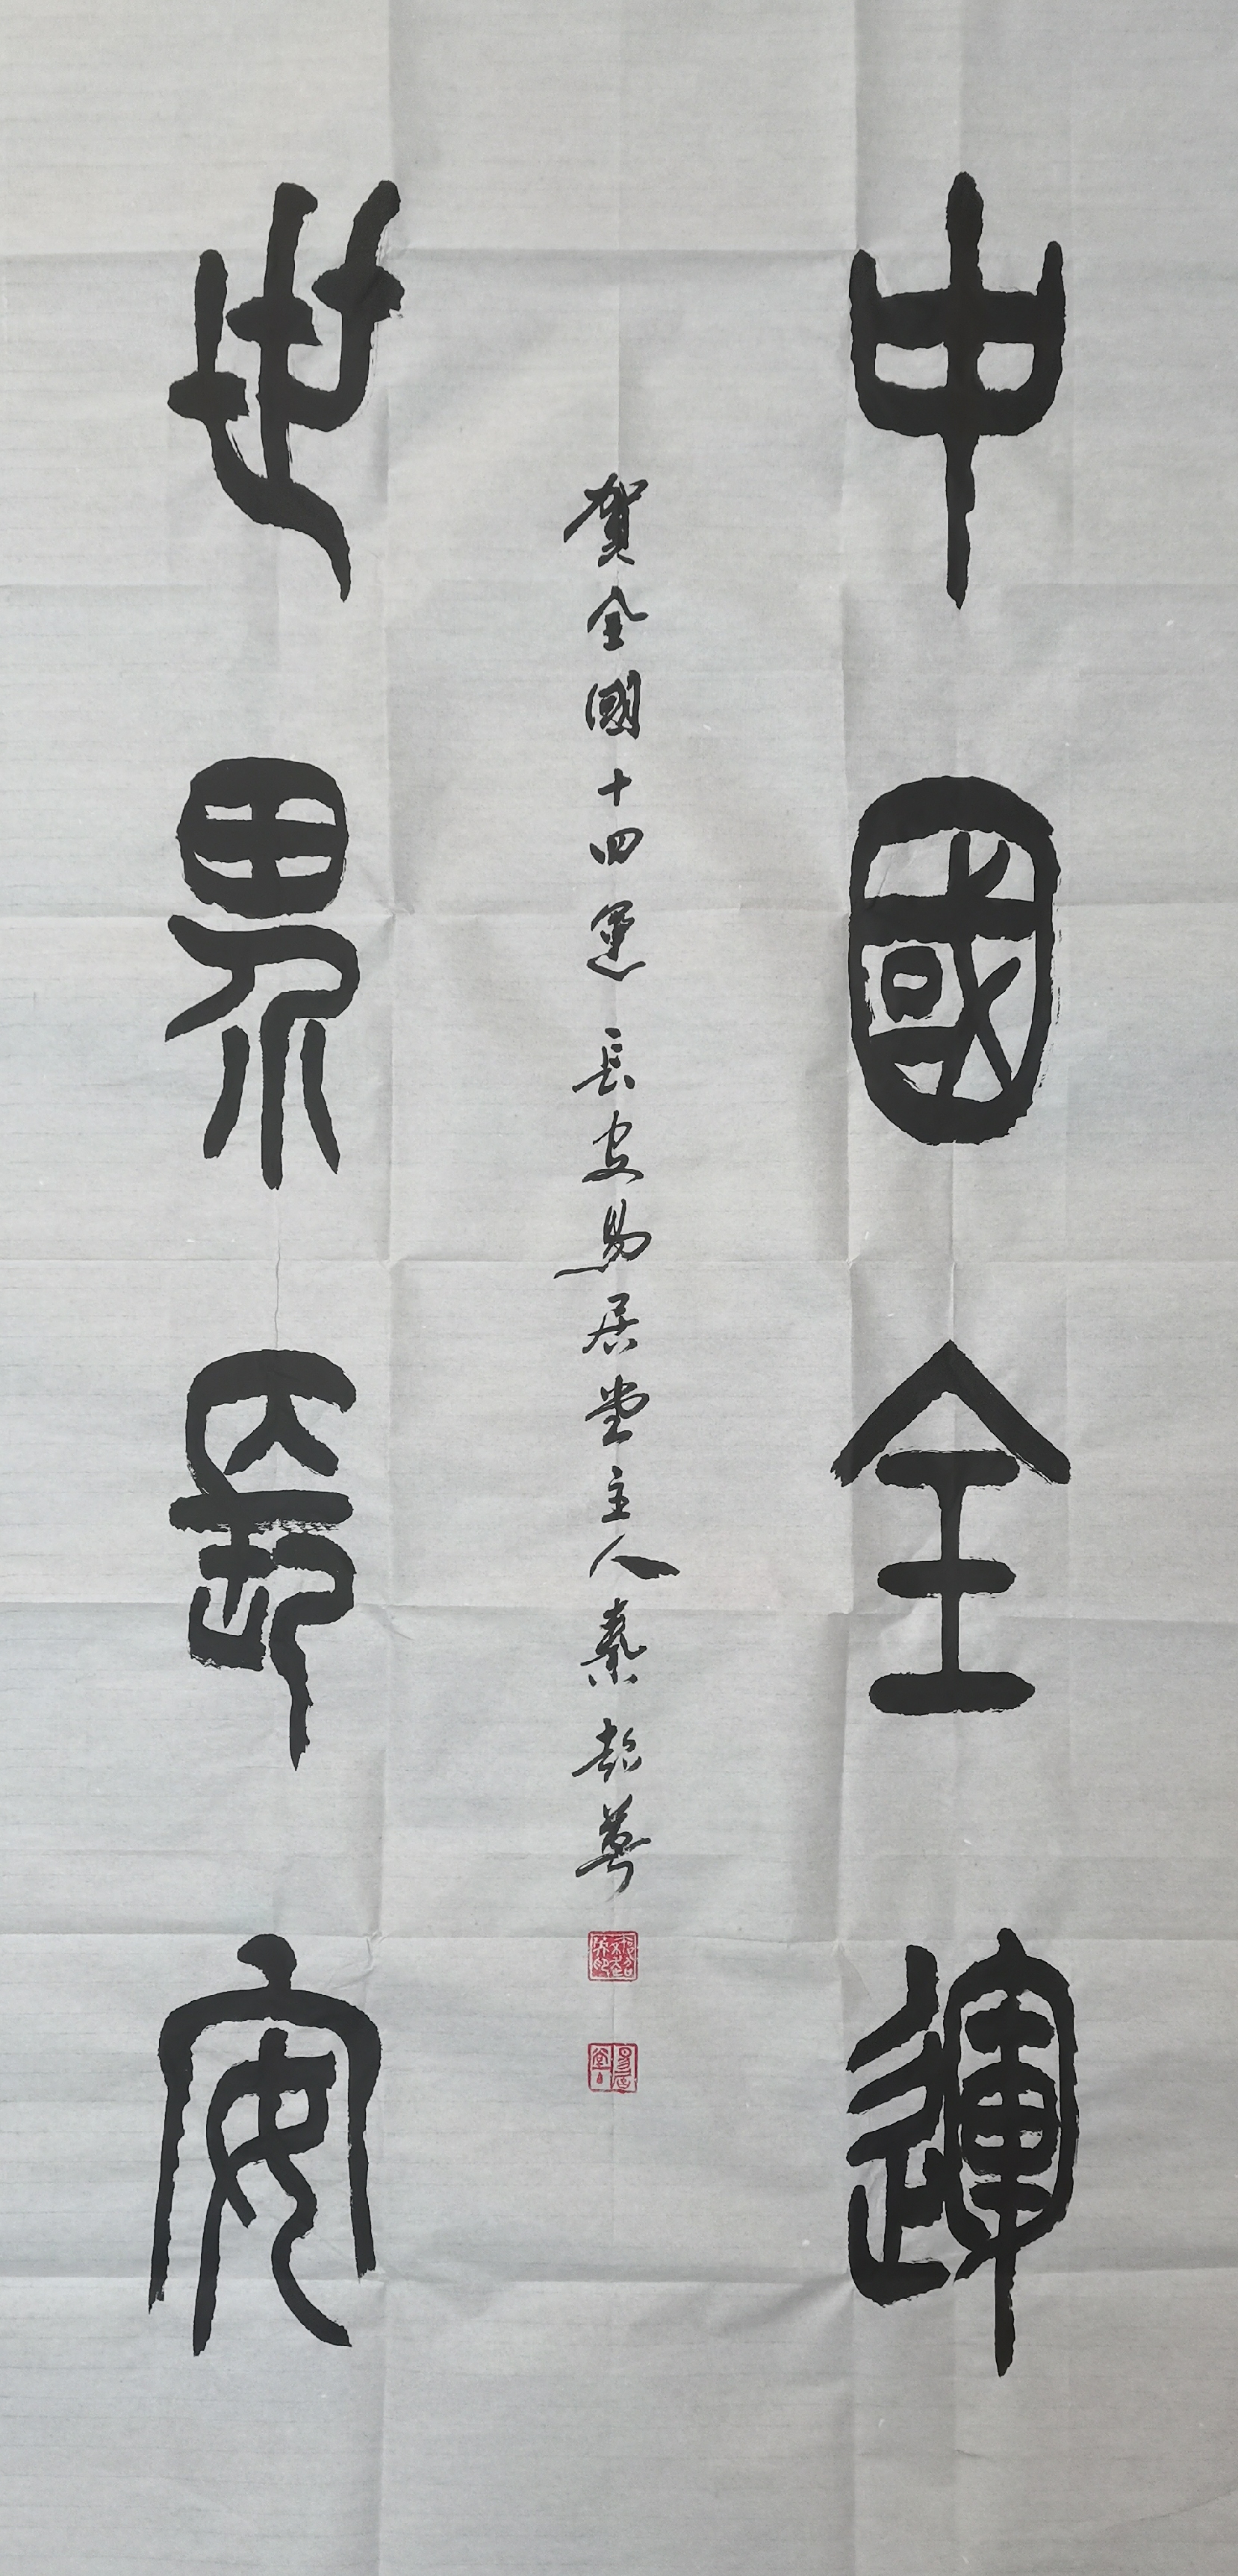 中國全運
世界長安
賀全國十四運 長安易居堂主人秦超英